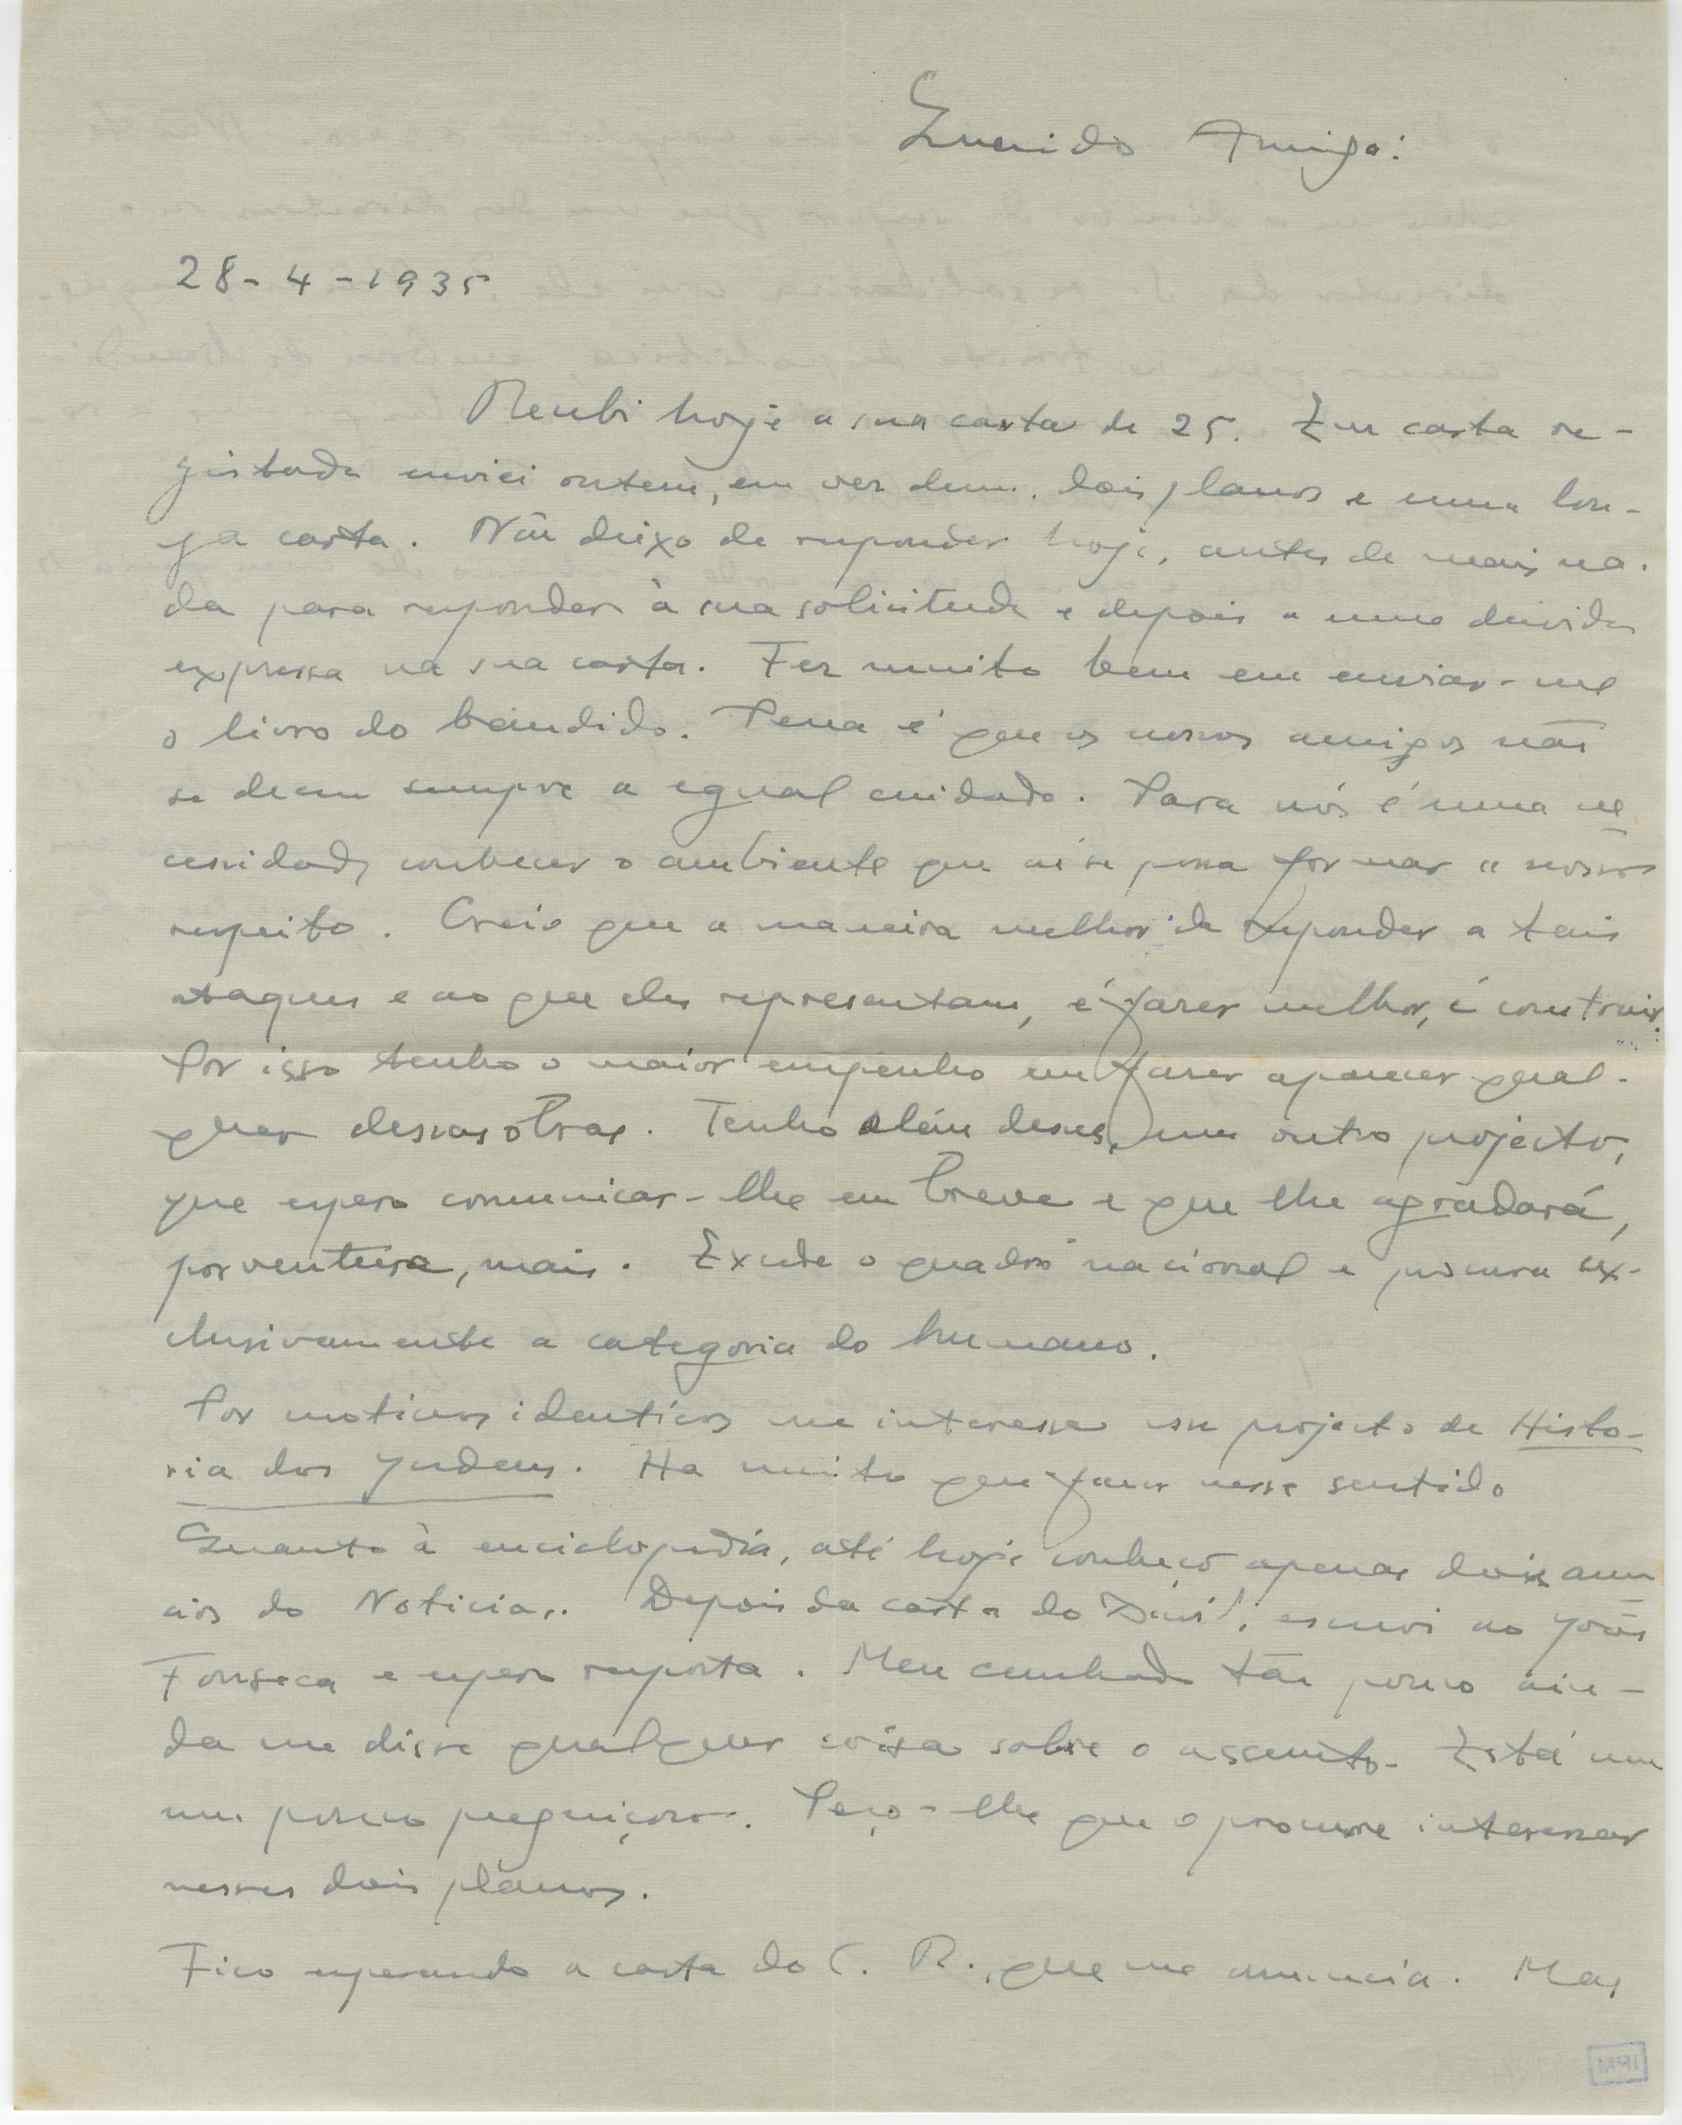 Querido Amigo:
28-4-1935
Recebi hoje a sua carta de 25. Em carta re-
gistada enviei ontem, em vez dum, dois planos e uma lon-
ga carta. Não deixo de responder hoje, antes de mais na-
da para responder à sua solicitude e depois a uma duvida
expressa na sua carta. Fez muito bem em enviar-me
o livro do bandido. Pena é que os nossos amigos não
se deem sempre a egual cuidado. Para nós é uma ne
cessidade conhecer o ambiente que aí se possa formar a nosso
respeito. Creio que a maneira melhor de responder a tais
ataques e ao que eles representam, é fazer melhor, é construir.
Por isso tenho o maior empenho em fazer aparecer qual-
quer dessas obras. Tenho além desses, um outro projecto,
que espero comunicar-lhe em breve e que lhe agradará,
porventura, mais. Excede o quadro nacional e procura ex-
clusivamente a categoria do humano.
Por motivos identicos me interessa esse projecto de Histo-
ria dos Judeus. Ha muito que fazer nesse sentido
Quanto à enciclopedia, até hoje conheço apenas dois anun
cios do Noticias. Depois da carta do, escrevi ao João
Fonseca e espero resposta. Meu cunhado tão pouco ain-
da me disse qualquer coisa sobre o assunto. Está um
um pouco preguiçoso. Peço-lhe que o procure interessar
nesses dois planos.
Fico esperando a carta do C. R., que me anuncia. Mas